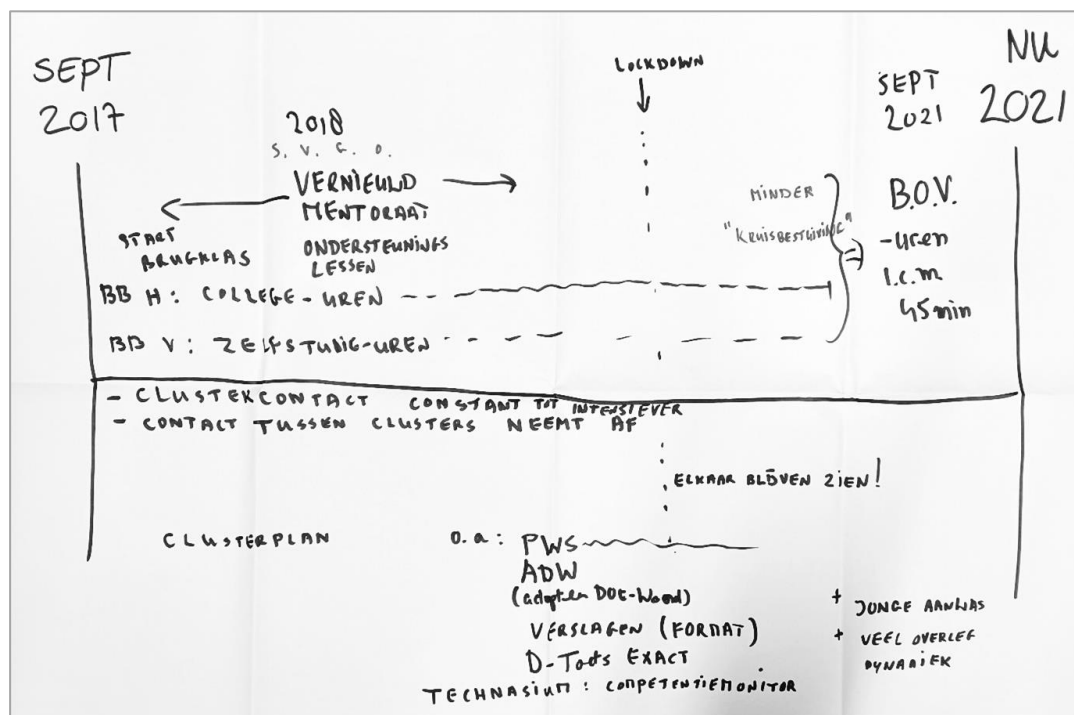 SEPT
2017
2018
S. V. G. O.
VERNIEUWD
MENTORAAT
START
BRUGKLAS
ONDERSTEUNINGS
LESSEN
LOCKDOWN
SEPT
2021
NU
2021
MINDER
"KRUISBESTUIVING"
B.O.V.
-uren
i.c.m
45 min
BB H: COLLEGE-UREN
BB V: ZELFSTUDIE-UREN
- CLUSTERCONTACT CONSTANT TOT INTENSIEVER
- CONTACT TUSSEN CLUSTERS NEEMT AF
ELKAAR BLIJVEN ZIEN!
CLUSTERPLAN
O.a: PWS
ADW
VERSLAGEN (FORMAT)
D-Toets EXACT
TECHNASIUM: COMPETENTIEMONITOR
+ JONGE AANWAS
+ VEEL OVERLEG
DYNAMIEK